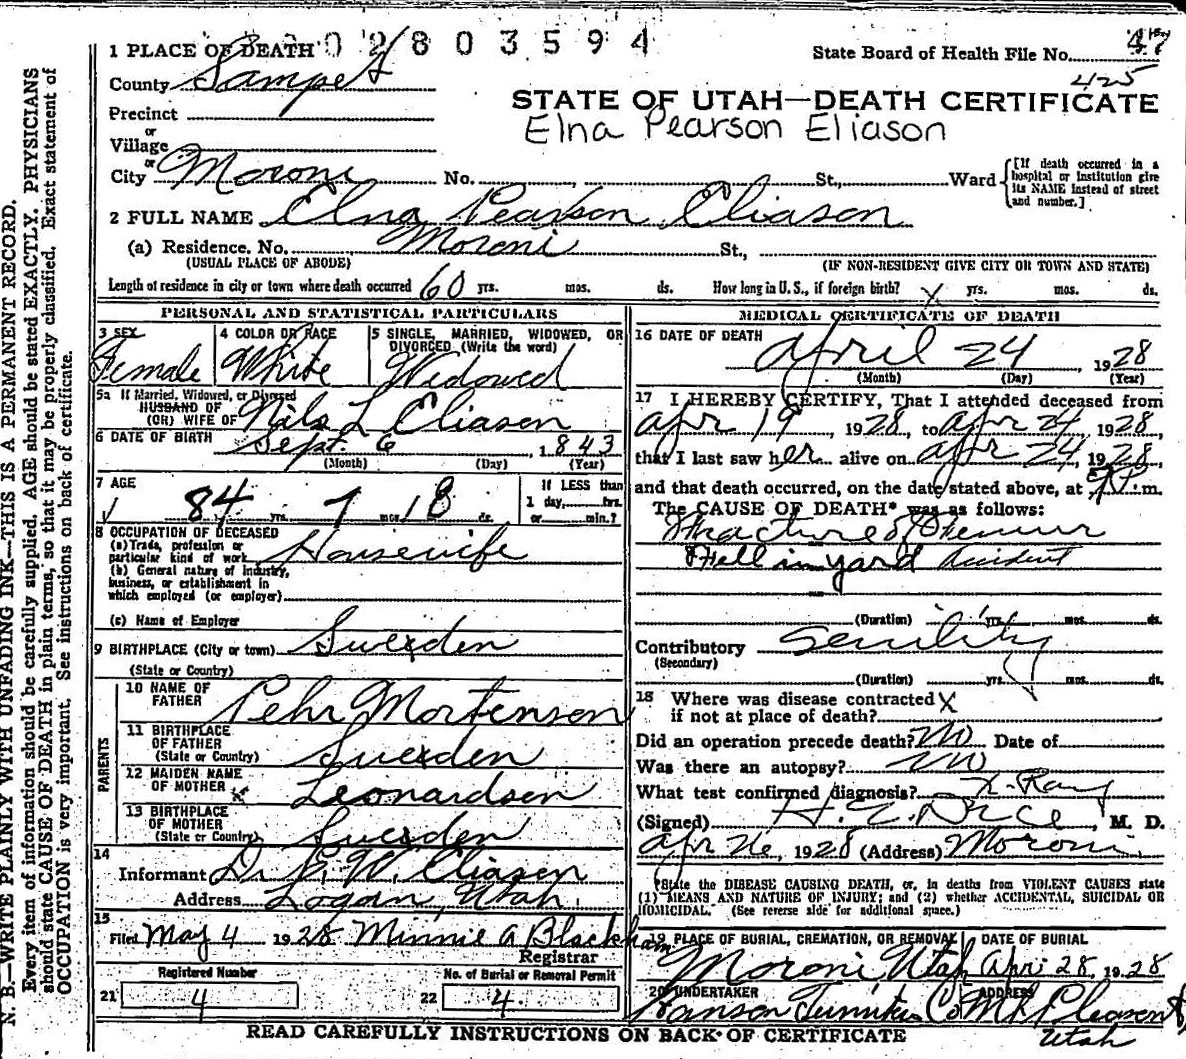 1 PLACE OF DEATH 0 2 8 0 3 5 9 4
State Board of Health File No. 47
County Sampet
425
STATE OF UTAH—DEATH CERTIFICATE
Precinct
Elna Pearson Eliason
or
Village
or
City Moroni No. , St., Ward
[If death occurred in a
hospital or institution give
its NAME instead of street
and number.]
2 FULL NAME Elna Pearson Eliason
(a) Residence. No. Moroni St.,
(USUAL PLACE OF ABODE) (IF NON-RESIDENT GIVE CITY OR TOWN AND STATE)
Length of residence in city or town where death occurred 60 yrs. mos. ds. How long in U.S., if foreign birth? X yrs. mos. ds.
PERSONAL AND STATISTICAL PARTICULARS
3 SEX
Female
4 COLOR OR RACE
White
5 SINGLE, MARRIED, WIDOWED, OR
DIVORCED (Write the word)
Widowed
5a If Married, Widowed, or Divorced
HUSBAND OF
(OR) WIFE OF Nils L Eliason
6 DATE OF BIRTH Sept. 6, 1843
(Month) (Day) (Year)
7 AGE
84 yrs. 7 mos. 18 ds.
If LESS than
1 day, hrs.
or min.?
8 OCCUPATION OF DECEASED
(a) Trade, profession or
particular kind of work Housewife
(b) General nature of Industry,
business, or establishment in
which employed (or employer)
(c) Name of Employer
9 BIRTHPLACE (City or town) Sweden
(State or Country)
PARENTS
10 NAME OF
FATHER Pehr Mortenson
11 BIRTHPLACE
OF FATHER
(State or Country) Sweden
12 MAIDEN NAME
OF MOTHER Leonardsen
13 BIRTHPLACE
OF MOTHER
(State or Country) Sweden
14
Informant Dr. W. Eliason
Address Logan, Utah.
15
Filed May 4 1928 Minnie A Blackham
Registrar
Registered Number
21 4
No. of Burial or Removal Permit
22 4
MEDICAL CERTIFICATE OF DEATH
16 DATE OF DEATH
April 24 1928
(Month) (Day) (Year)
17 I HEREBY CERTIFY, That I attended deceased from
Apr 19, 1928, to Apr 24, 1928,
that I last saw her alive on Apr 24, 1928,
and that death occurred, on the date stated above, at m.
The CAUSE OF DEATH* was as follows:
Fracture of Femur
Fell in yard Accident
(Duration) yrs. mos. ds.
Contributory Senility
(Secondary)
(Duration) yrs. mos. ds.
18 Where was disease contracted X
if not at place of death?
Did an operation precede death? No Date of
Was there an autopsy? No
What test confirmed diagnosis? X-Ray
(Signed) H. E. Dice, M. D.
Apr 26, 1928 (Address) Moroni
*State the DISEASE CAUSING DEATH, or, in deaths from VIOLENT CAUSES state
(1) MEANS AND NATURE OF INJURY; and (2) whether ACCIDENTAL, SUICIDAL OR
HOMICIDAL. (See reverse side for additional space.)
19 PLACE OF BURIAL, CREMATION, OR REMOVAL
Moroni, Utah
DATE OF BURIAL
Apr. 28, 1928
20 UNDERTAKER
ADDRESS
Co Mt Pleasant,
Utah
READ CAREFULLY INSTRUCTIONS ON BACK OF CERTIFICATE
N. B.—WRITE PLAINLY WITH UNFADING INK—THIS IS A PERMANENT RECORD.
Every item of information should be carefully supplied. AGE should be stated EXACTLY. PHYSICIANS
should state CAUSE OF DEATH in plain terms, so that it may be properly classified. Exact statement of
OCCUPATION is very important. See instructions on back of certificate.